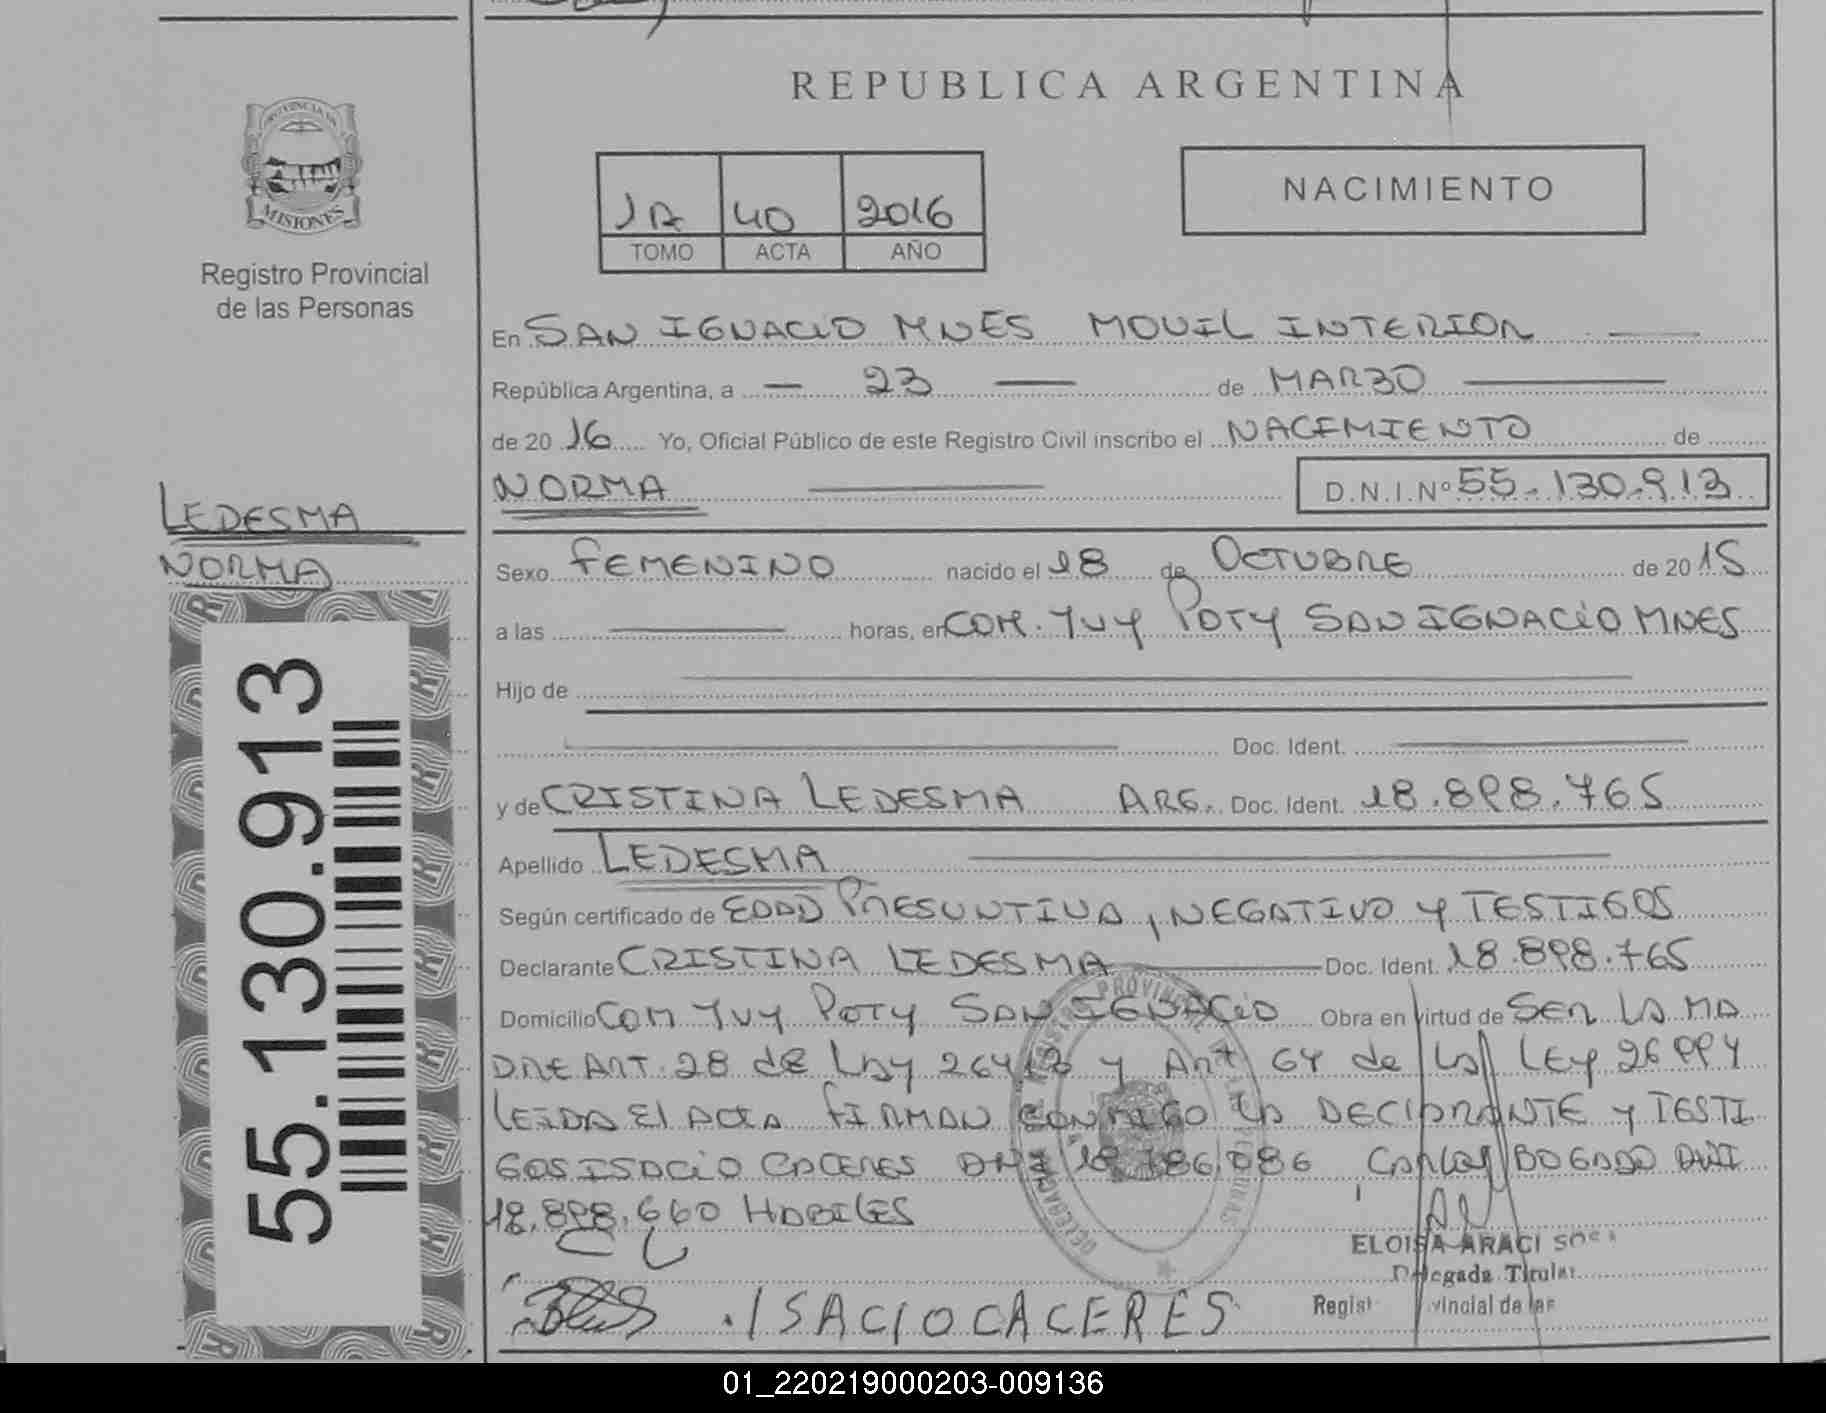 REPUBLICA ARGENTINA
PROVINCIA DE
MISIONES
Registro Provincial
de las Personas
1A 40 2016
TOMO ACTA AÑO
NACIMIENTO
En SAN IGNACIO MNES MOVIL INTERIOR
República Argentina, a — 23 — de MARZO
de 20 16 Yo, Oficial Público de este Registro Civil inscribo el NACIMIENTO de
NORMA D.N.I.Nº 55.130.913
LEDESMA
NORMA
55.130.913
Sexo FEMENINO nacido el 18 de OCTUBRE de 20 15
a las horas, en COM. YVY POTY SAN IGNACIO MNES
Hijo de
Doc. Ident.
y de CRISTINA LEDESMA ARG. Doc. Ident. 18.898.765
Apellido LEDESMA
Según certificado de EDAD PRESUNTIVA, NEGATIVO y TESTIGOS
Declarante CRISTINA LEDESMA Doc. Ident. 18.898.765
Domicilio COM YVY POTY SAN IGNACIO Obra en virtud de SER LA MA
DRE ART. 28 de Ley 26413 y Art 64 de la LEY 26994
LEIDA El ACTA FIRMAN CONMIGO LA DECLARANTE y TESTI
GOS ISACIO CACERES DNI CARLOS BOGADO DNI
18.898.660 HABILES
ELOISA ARACI SOSA
Delegada Titular
.ISACIO CACERES
Regist vincial de las
01_220219000203-009136